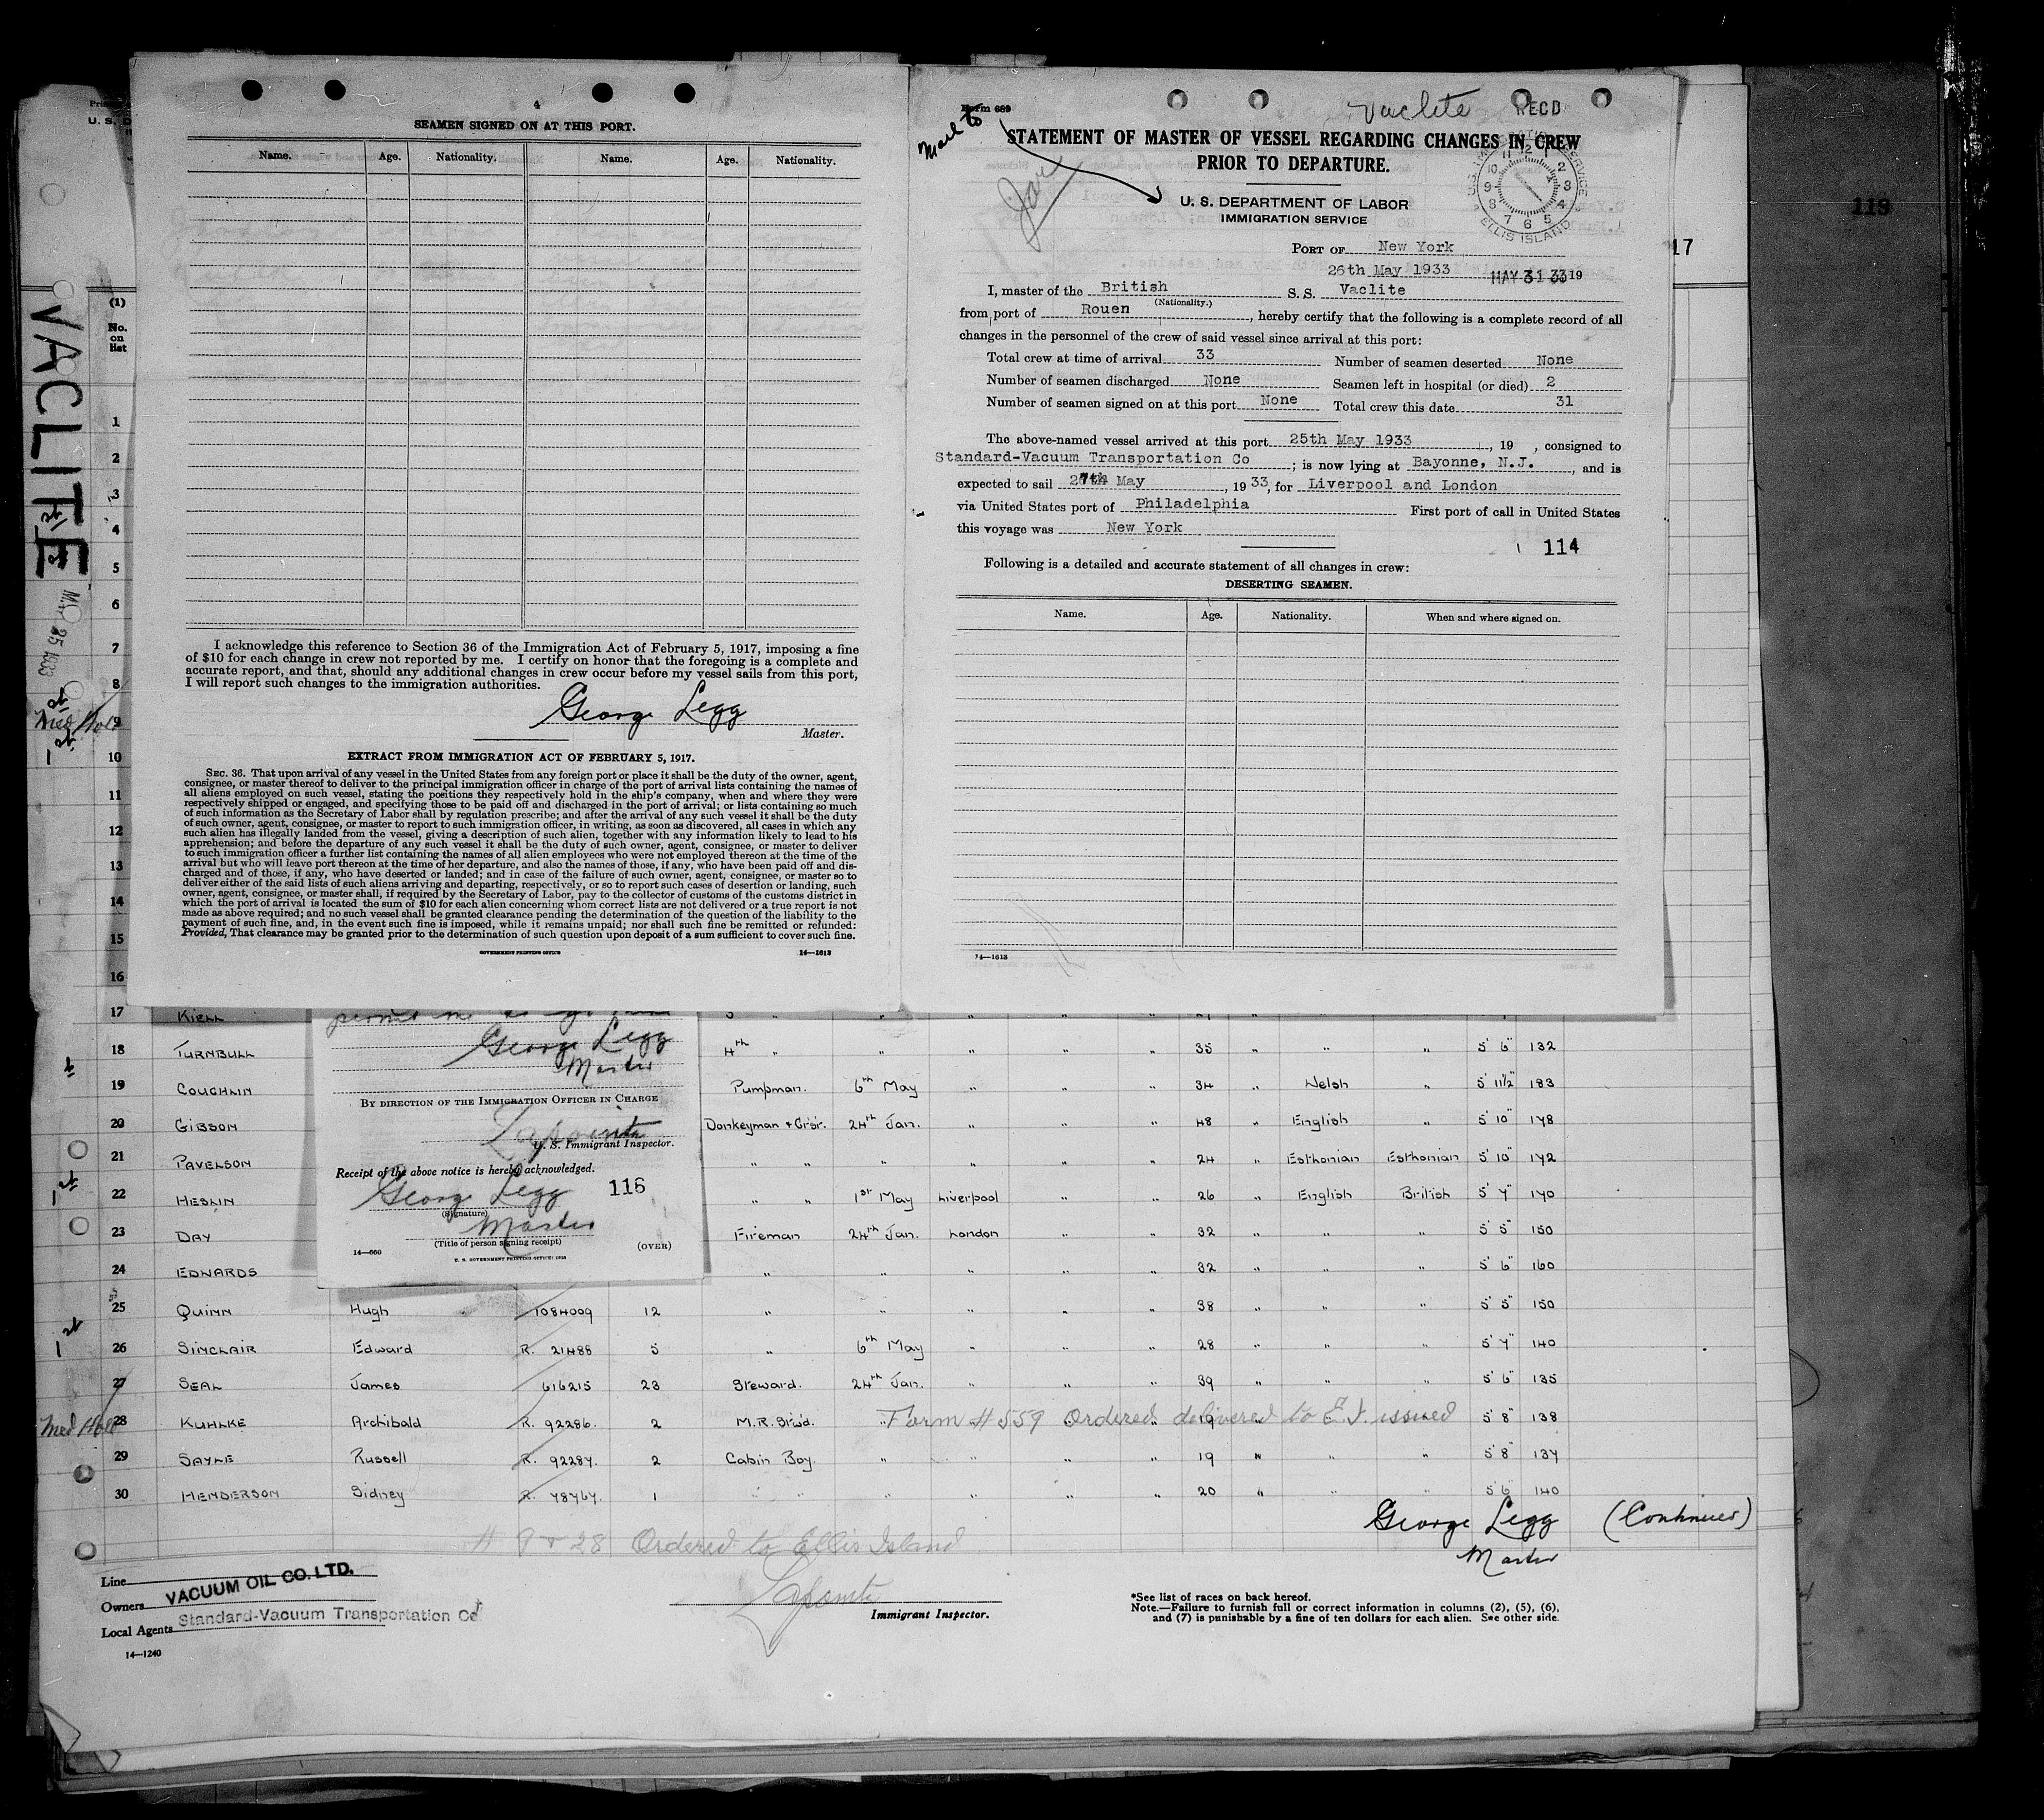 4
SEAMEN SIGNED ON AT THIS PORT.
Name. Age. Nationality. Name. Age. Nationality.
I acknowledge this reference to Section 36 of the Immigration Act of February 5, 1917, imposing a fine
of $10 for each change in crew not reported by me. I certify on honor that the foregoing is a complete and
accurate report, and that, should any additional changes in crew occur before my vessel sails from this port,
I will report such changes to the immigration authorities.
George Legg
Master.
EXTRACT FROM IMMIGRATION ACT OF FEBRUARY 5, 1917.
SEC. 36. That upon arrival of any vessel in the United States from any foreign port or place it shall be the duty of the owner, agent,
consignee, or master thereof to deliver to the principal immigration officer in charge of the port of arrival lists containing the names of
all aliens employed on such vessel, stating the positions they respectively hold in the ship's company, when and where they were
respectively shipped or engaged, and specifying those to be paid off and discharged in the port of arrival; or lists containing so much
of such information as the Secretary of Labor shall by regulation prescribe; and after the arrival of any such vessel it shall be the duty
of such owner, agent, consignee, or master to report to such immigration officer, in writing, as soon as discovered, all cases in which any
such alien has illegally landed from the vessel, giving a description of such alien, together with any information likely to lead to his
apprehension; and before the departure of any such vessel it shall be the duty of such owner, agent, consignee, or master to deliver
to such immigration officer a further list containing the names of all alien employees who were not employed thereon at the time of the
arrival but who will leave port thereon at the time of her departure, and also the names of those, if any, who have been paid off and dis-
charged and of those, if any, who have deserted or landed; and in case of the failure of such owner, agent, consignee, or master so to
deliver either of the said lists of such aliens arriving and departing, respectively, or so to report such cases of desertion or landing, such
owner, agent, consignee, or master shall, if required by the Secretary of Labor, pay to the collector of customs of the customs district in
which the port of arrival is located the sum of $10 for each alien concerning whom correct lists are not delivered or a true report is not
made as above required; and no such vessel shall be granted clearance pending the determination of the question of the liability to the
payment of such fine, and, in the event such fine is imposed, while it remains unpaid; nor shall such fine be remitted or refunded:
Provided, That clearance may be granted prior to the determination of such question upon deposit of a sum sufficient to cover such fine.
GOVERNMENT PRINTING OFFICE 14—1613
Form 689
Vaclite RECD
Mail to
STATEMENT OF MASTER OF VESSEL REGARDING CHANGES IN CREW
PRIOR TO DEPARTURE.
U. S. DEPARTMENT OF LABOR
IMMIGRATION SERVICE
ELLIS ISLAND
PORT OF New York
26th May 1933 MAY 31 33 19
I, master of the British S. S. Vaclite
(Nationality.)
from port of Rouen, hereby certify that the following is a complete record of all
changes in the personnel of the crew of said vessel since arrival at this port:
Total crew at time of arrival 33 Number of seamen deserted None
Number of seamen discharged None Seamen left in hospital (or died) 2
Number of seamen signed on at this port None Total crew this date 31
The above-named vessel arrived at this port 25th May 1933, 19 , consigned to
Standard-Vacuum Transportation Co; is now lying at Bayonne, N.J., and is
expected to sail 27th May, 1933, for Liverpool and London
via United States port of Philadelphia First port of call in United States
this voyage was New York
114
Following is a detailed and accurate statement of all changes in crew:
DESERTING SEAMEN.
Name. Age. Nationality. When and where signed on.
14—1613
119
17
VACLITE
(1)
No.
on
list
1
2
3
4
5
6
7
8
9 Med Hold
10
11
12
13
14
15
16
17 KIELL
18 TURNBULL 4th " " " " " 35 " " " 5' 6" 132
19 COUGHLIN Pumpman. 6th May " " " 34 " Welsh " 5' 11½" 183
20 GIBSON Donkeyman + Gr'sr. 24th Jan. " " " 48 " English " 5' 10" 178
21 PAVELSON " " " " " " 24 " Esthonian Esthonian 5' 10" 172
22 HESLIN " " 1st May Liverpool " " 26 " English British 5' 7" 170
23 DAY Fireman 24th Jan. London " " 32 " " " 5' 5" 150
24 EDWARDS " " " " " 32 " " " 5' 6" 160
25 QUINN Hugh 1084009 12 " " " " " 38 " " " 5' 5" 150
26 SINCLAIR Edward R. 21488 5 " 6th May " " " 28 " " " 5' 7" 140
27 SEAL James 616215 23 Steward. 24th Jan. " " " 39 " " " 5' 6" 135
Med Hold 28 KUHLKE Archibald R. 92286. 2 M.R. Stw'd. " Form # 559 Ordered delivered to E.I. issued 19 5' 8" 138
29 SAYLE Russell R. 92287. 2 Cabin Boy. " " " " 19 " " " 5' 8" 137
30 HENDERSON Sidney R. 78767. 1 " " " " " " 20 " " " 5' 6" 140
George Legg
Master
BY DIRECTION OF THE IMMIGRATION OFFICER IN CHARGE
Lapointe
U. S. Immigrant Inspector.
Receipt of the above notice is hereby acknowledged.
George Legg 116
(Signature)
Master
(Title of person signing receipt)
14—660 (OVER)
U. S. GOVERNMENT PRINTING OFFICE
George Legg (Continued)
Master
# 9 + 28 Ordered to Ellis Island
Lapointe
Immigrant Inspector.
Line
Owners VACUUM OIL CO. LTD.
Local Agents Standard-Vacuum Transportation Co
14—1240
*See list of races on back hereof.
Note.—Failure to furnish full or correct information in columns (2), (5), (6),
and (7) is punishable by a fine of ten dollars for each alien. See other side.